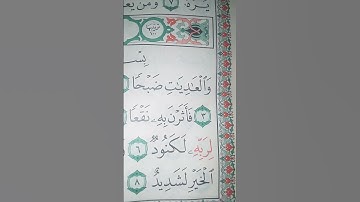 يَرَهُۥ ٧ وَمَن يَعۡ
بِسۡ
وَٱلۡعَٰدِيَٰتِ ضَبۡحٗا
٣ فَأَثَرۡنَ بِهِۦ نَقۡعٗا
لِرَبِّهِۦ لَكَنُودٞ ٦
ٱلۡخَيۡرِ لَشَدِيدٌ ٨